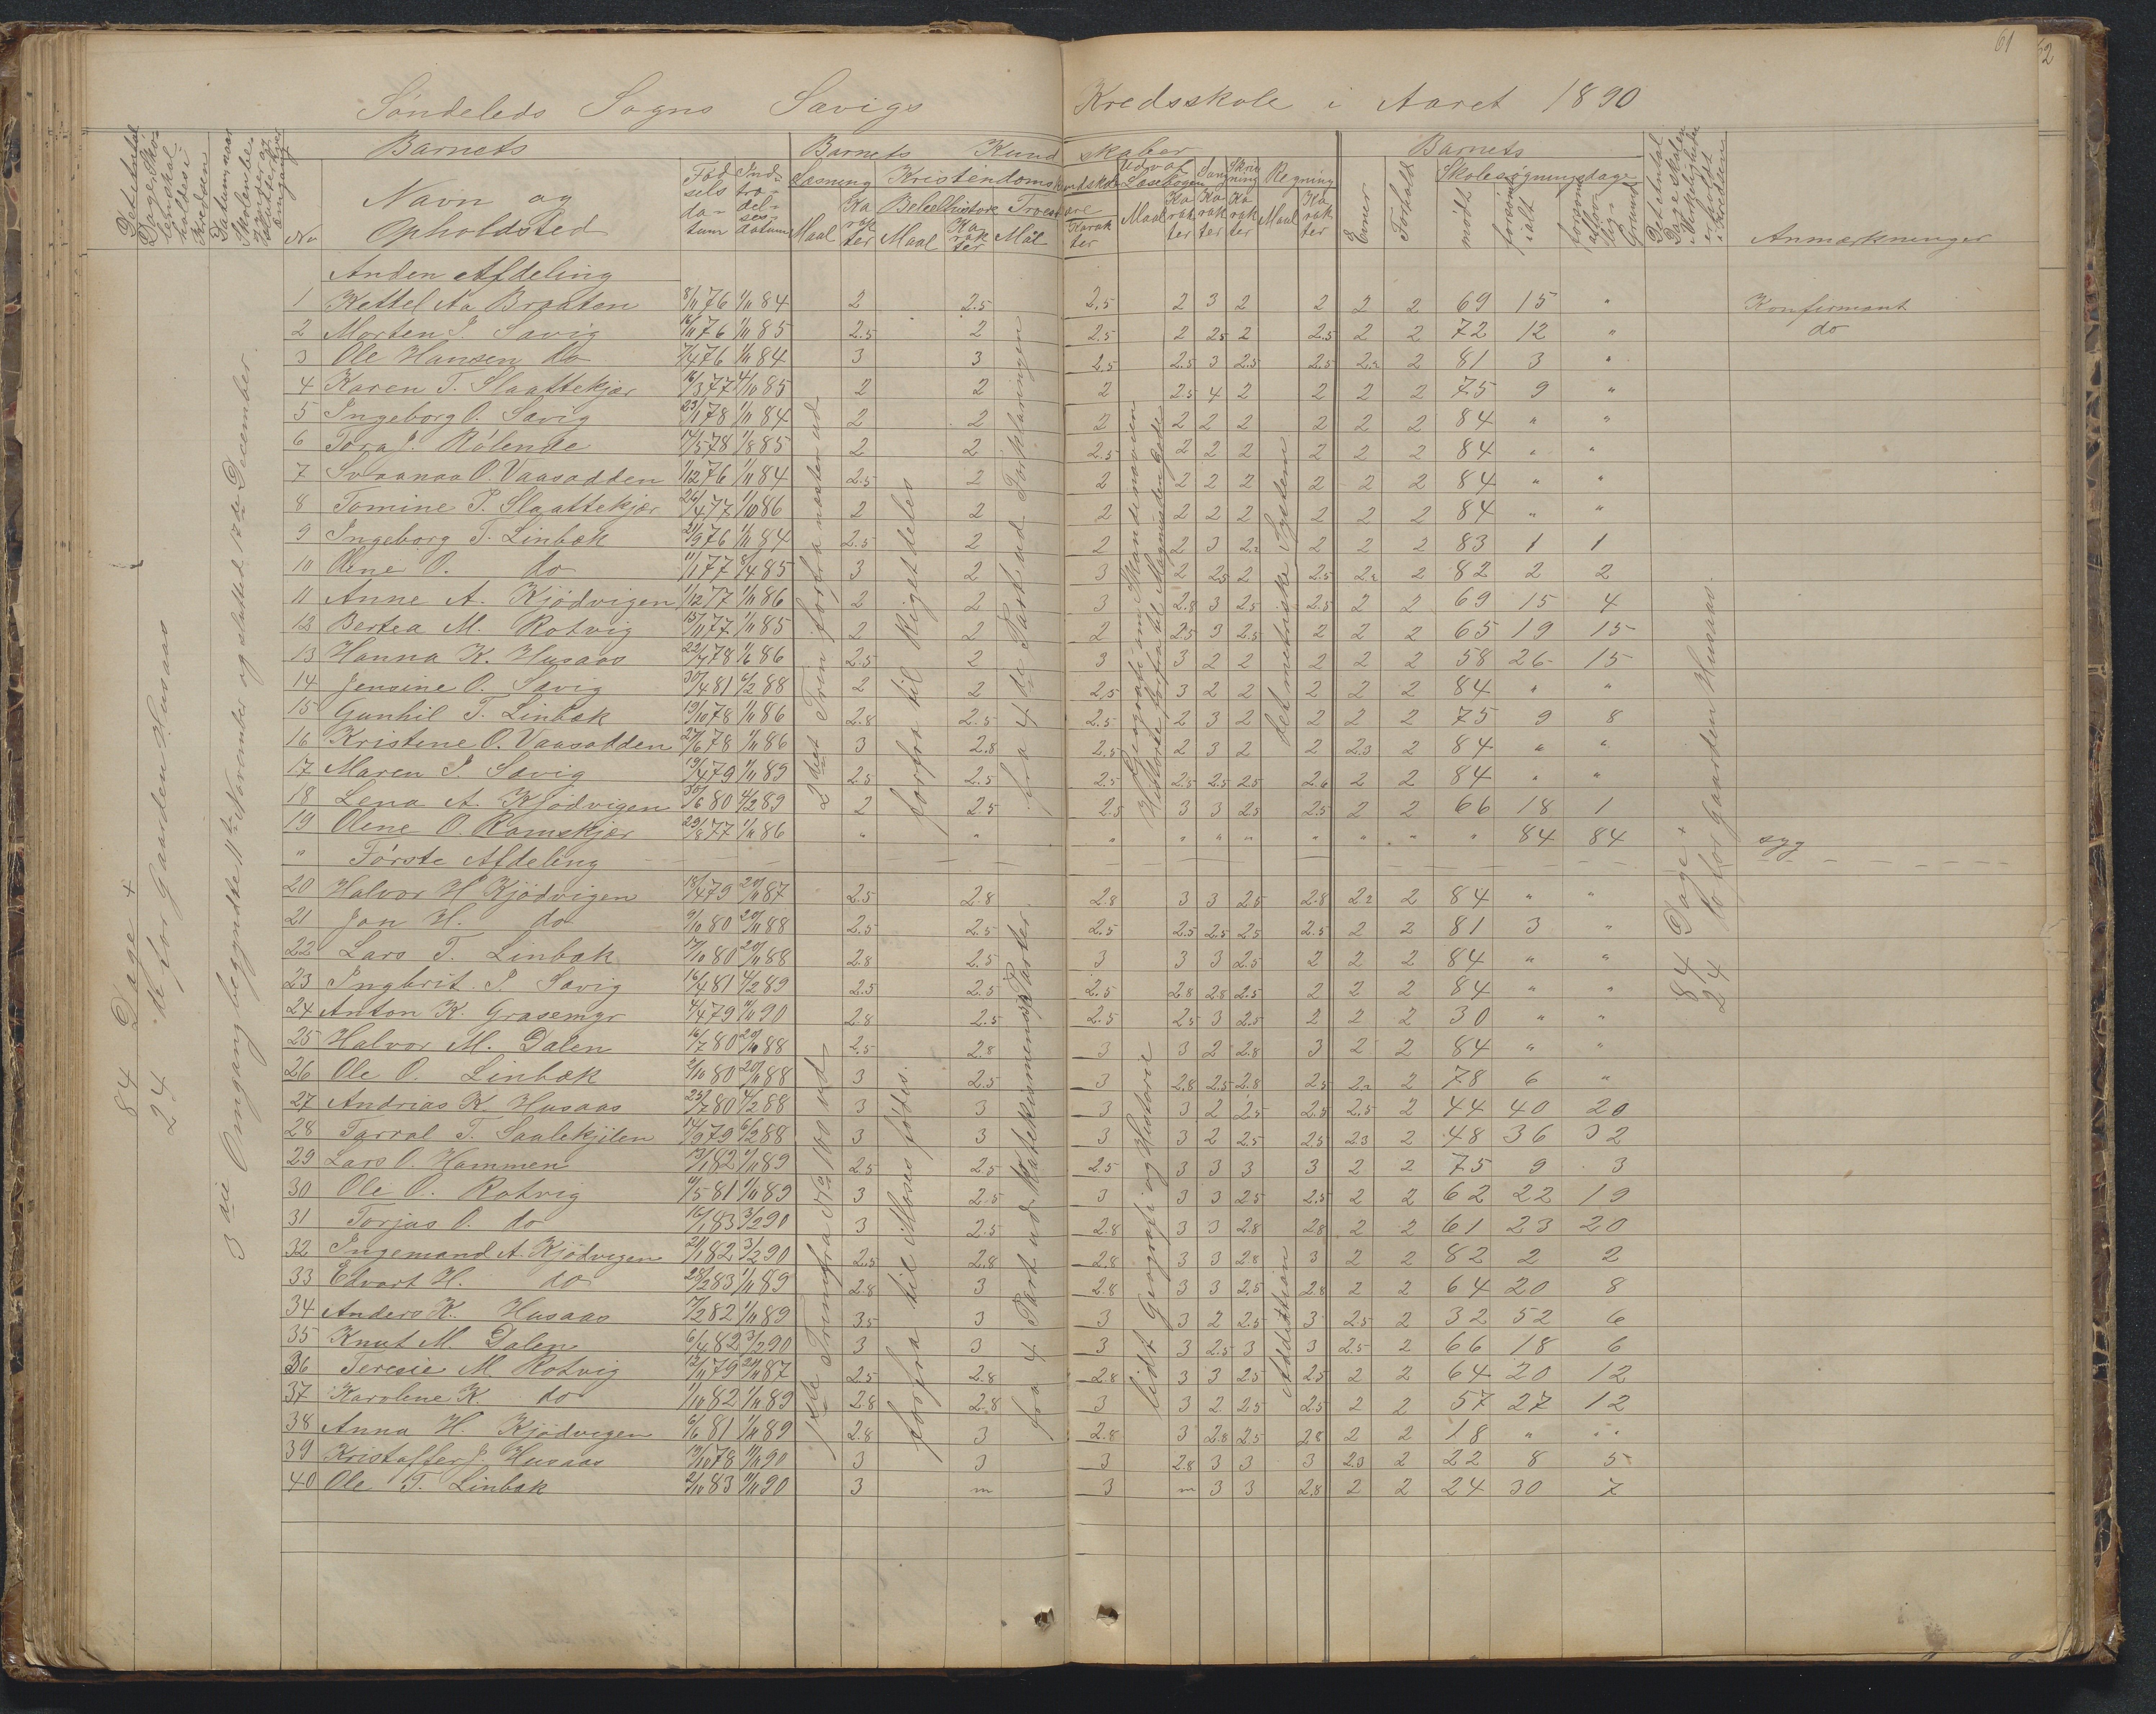 61
62
Søndeleds Sogns Savigs Kredsskole i Aaret 1890
Det Antal Dage Skolen skal holdes i Kredsen
Datum, naar Skolen begynder og slutter hver Omgang
No
Barnets
Navn og Opholdsted
Fødselsdatum
Indtrædelsesdatum
Barnets Kundskaber
Læsning
Maal
Karakter
Kristendomskundskab
Bibelhistorie
Maal
Karakter
Troeslære
Mål
Karakter
Udvalg Læsebogen
Maal
Karakter
Sang
Karakter
Skrivning
Karakter
Regning
Maal
Karakter
Barnets
Evner
Forhold
Skolesøgningsdage
mødt
forsømt ialt
forsømt af lovlig Grund
Det Antal Dage Skolen i Virkeligheden er holdt i Kredsen
Anmærkninger
84 Dage +
24 do for Gaarden Husaas
3die Omgang begyndte 11te November og slutted 17de December.
Anden Afdeling
1 Kettel Aa. Braaten 8/11 76 1/11 84 2 2.5 2.5 2 3 2 2 2 2 69 15 " Konfirmant
2 Morten J. Savig 16/11 76 1/11 85 2.5 2 2.5 2 2.5 2 2.5 2 2 72 12 " do
3 Ole Hansen do 7/4 76 1/11 84 3 3 2.5 2.5 3 2.5 2.5 2.2 2 81 3 "
4 Karen T. Slaattekjær 16/3 77 4/10 85 2 2 2 2.5 4 2 2 2 2 75 9 "
5 Ingeborg O. Savig 23/1 78 1/11 84 2 2 2 2 2 2 2 2 2 84 " "
6 Tora J. Rølende 17/5 78 1/8 85 2 2 2.5 2 2 2 2 2 2 84 " "
7 Svaanaa O. Vaasodden 1/12 76 1/11 84 2.5 2 2 2 2 2 2 2 2 84 " "
8 Tomine P. Slaattekjær 26/4 77 1/10 86 2 2 2 2 2 2 2 2 2 84 " "
9 Ingeborg T. Linbæk 21/9 76 1/11 84 2.5 2 2 2 3 2.2 2 2 2 83 1 1
10 Olene O. do 11/1 77 8/4 85 3 2 3 2 2.5 2 2.5 2.2 2 82 2 2
11 Anne A. Kjødvigen 1/12 77 1/11 86 2 2 3 2.8 3 2.5 2.5 2 2 69 15 4
12 Bertea M. Rotvig 15/11 77 1/11 85 2 2 2 2.5 3 2.5 2 2 2 65 19 15
13 Hanna K. Husaas 22/4 78 1/6 86 2.5 2 3 3 2 2 2 2 2 58 26 15
14 Jensine O. Savig 30/4 81 6/2 88 2 2 2.5 3 2 2 2 2 2 84 " "
15 Gunhil T. Linbæk 19/10 78 1/11 86 2.8 2.5 2.5 2 3 2 2 2 2 75 9 8
16 Kristene O. Vaasodden 27/6 78 1/11 86 3 2.8 2.5 2 3 2 2 2.3 2 84 " "
17 Maren J. Savig 19/4 79 1/11 89 2.5 2.5 2.5 2.5 2.5 2.5 2.6 2 2 84 " "
18 Lena A. Kjødvigen 30/6 80 4/2 89 2 2.5 2.5 3 3 2.5 2.5 2 2 66 18 1
19 Olene O. Ramskjær 29/8 77 1/11 86 " " " " " " " " " " 84 84 syg
" Første Afdeling
20 Halvor H. Kjødvigen 18/4 79 29/11 87 2.5 2.8 2.8 3 3 2.5 2.8 2.2 2 84 " "
21 Jon H. do 9/10 80 20/11 88 2.5 2.5 2.5 2.5 2.5 2.5 2.5 2 2 81 3 "
22 Lars T. Linbæk 17/10 80 20/11 88 2.8 2.5 3 3 3 2.5 2 2 2 84 " "
23 Ingbrit J. Savig 16/4 81 4/2 89 2.5 2.5 2.5 2.8 2.8 2.5 2 2 2 84 " "
24 Anton K. Grasemyr 4/4 79 11/11 90 2.8 2.5 2.5 2.5 3 2.5 2 2 2 30 " "
25 Halvor M. Dalen 16/7 80 20/11 88 2.5 2.8 3 3 2 2.8 3 2 2 84 " "
26 Ole O. Linbæk 2/10 80 20/11 88 3 2.5 3 2.8 2.5 2.8 2.5 2.2 2 78 6 "
27 Andrias K. Husaas 25/7 80 4/2 88 3 3 3 3 2 2.5 2.5 2.5 2 44 40 20
28 Tarral T. Saalekjilen 14/9 79 6/2 88 3 3 3 3 2 2.5 2.5 2.3 2 48 36 32
29 Lars O. Hammen 13/1 82 1/11 89 2.5 2.5 2.5 3 3 3 3 2 2 75 9 3
30 Ole O. Rotvig 11/5 81 1/10 89 3 2.5 3 3 3 2.5 2.5 2 2 62 22 19
31 Torjus O. do 16/1 83 3/2 90 3 2.5 2.8 3 3 2.8 2.8 2 2 61 23 20
32 Ingemand A. Kjødvigen 21/1 82 3/2 90 2.5 2.8 2.8 3 3 2.8 3 2 2 82 2 2
33 Edvart H. do 28/2 83 1/11 89 2.8 3 2.8 3 3 2.5 2.8 2 2 64 20 8
34 Anders K. Husaas 17/2 82 1/11 89 3.5 3 3 3 2 2.5 3 2.5 2 32 52 6
35 Knut M. Dalen 6/4 82 3/2 90 3 3 3 3 2.5 3 3 2.5 2 66 18 6
36 Teresie M. Rotvig 12/11 79 21/11 87 2.5 2.8 2.8 3 3 2.5 2.5 2 2 64 20 12
37 Karolene K. do 1/10 82 1/11 89 2.8 2.8 3 3 2 2.5 2.5 2 2 57 27 12
38 Anna H. Kjødvigen 6/6 81 1/11 89 2.8 3 2.8 3 2.8 2.5 2.8 2 2 18 " "
39 Kristoffer J. Husaas 19/10 78 11/11 90 3 3 3 2.8 3 3 3 2.3 2 22 8 5
40 Ole T. Linbæk 2/10 83 11/11 90 3 m 3 m 3 3 2.8 2 2 24 30 7
2det Trin forfra næsten ud
forfra til Riget deles
fra 4de Part ud Forklaringen
Geografi om Skandinavien
Historie forfra til Magnus den Gode
det metriske System
1ste Trin fra No 100 ud
forfra til Moses fødes.
fra 4 Part ud Katekismens Parter.
lidt Geografi og Historie
Addition
84 Dage +
24 do for Gaarden Husaas.